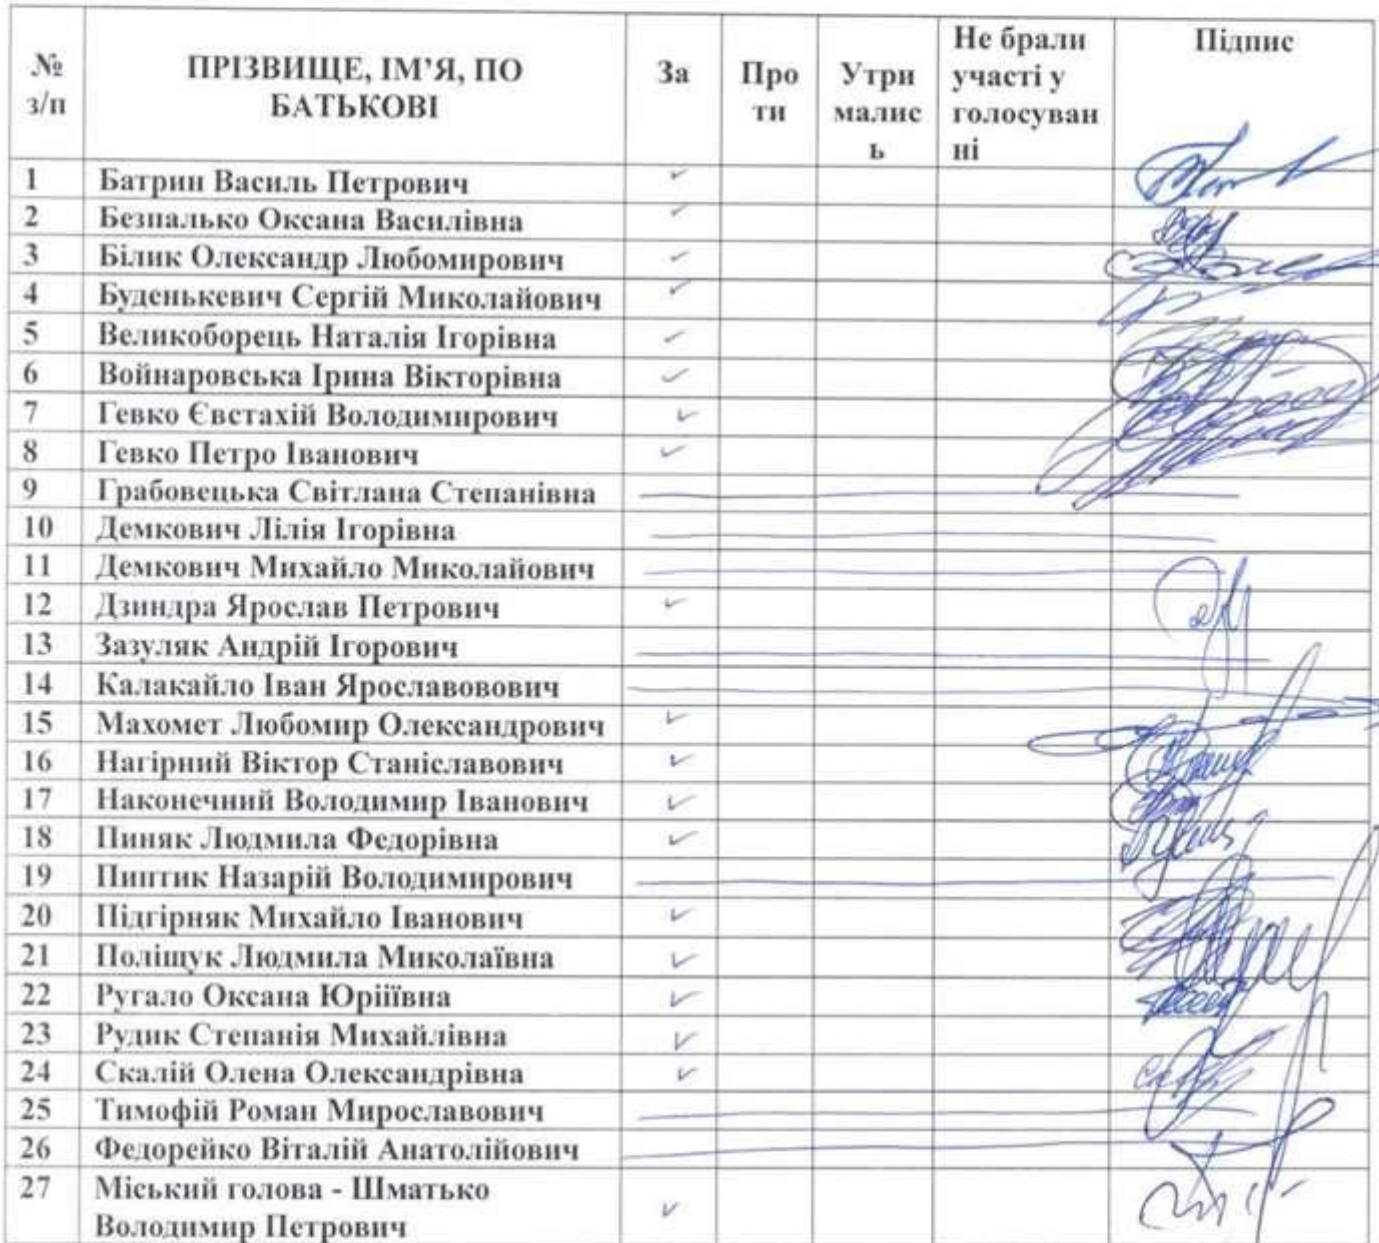 № з/п ПРІЗВИЩЕ, ІМ’Я, ПО БАТЬКОВІ За Про ти Утри малис ь Не брали участі у голосуван ні Підпис
1 Батрин Василь Петрович ✓
2 Безпалько Оксана Василівна ✓
3 Білик Олександр Любомирович ✓
4 Буденькевич Сергій Миколайович ✓
5 Великоборець Наталія Ігорівна ✓
6 Войнаровська Ірина Вікторівна ✓
7 Гевко Євстахій Володимирович ✓
8 Гевко Петро Іванович ✓
9 Грабовецька Світлана Степанівна
10 Демкович Лілія Ігорівна
11 Демкович Михайло Миколайович
12 Дзиндра Ярослав Петрович ✓
13 Зазуляк Андрій Ігорович
14 Калакайло Іван Ярославовович
15 Махомет Любомир Олександрович ✓
16 Нагірний Віктор Станіславович ✓
17 Наконечний Володимир Іванович ✓
18 Пиняк Людмила Федорівна ✓
19 Пиптик Назарій Володимирович
20 Підгірняк Михайло Іванович ✓
21 Поліщук Людмила Миколаївна ✓
22 Ругало Оксана Юріїївна ✓
23 Рудик Степанія Михайлівна ✓
24 Скалій Олена Олександрівна ✓
25 Тимофій Роман Мирославович
26 Федорейко Віталій Анатолійович
27 Міський голова - Шматько
Володимир Петрович ✓